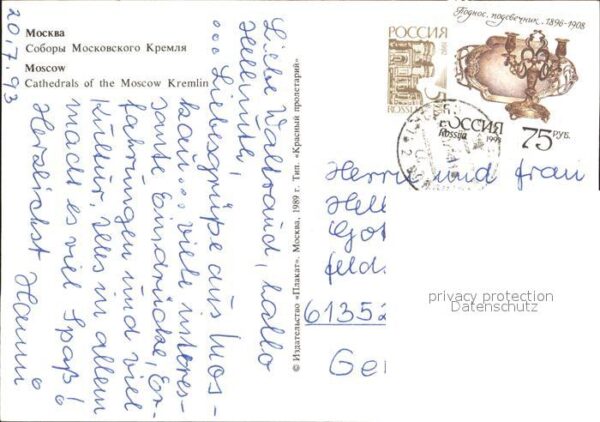 Москва
Соборы Московского Кремля
Moscow
Cathedrals of the Moscow Kremlin
20.7.93
Liebe Waltraud, hallo
Hellmuth,
... Liebesgrüße aus Mos-
kau... viele interes-
sante Eindrücke, Er-
fahrungen und viel
Kultur, alles in allem
macht es viel Spaß!
Herzlichst Hanno
© Издательство «Плакат». Москва, 1989 г. Тип. «Красный пролетарий»
РОССИЯ
1992
5
ROSSIJA
Поднос, подсвечник. 1896-1908
РОССИЯ
Rossija 1993
75 РУБ.
Herrn und Frau
Hell
Got
feld
6135
Ge
privacy protection
Datenschutz